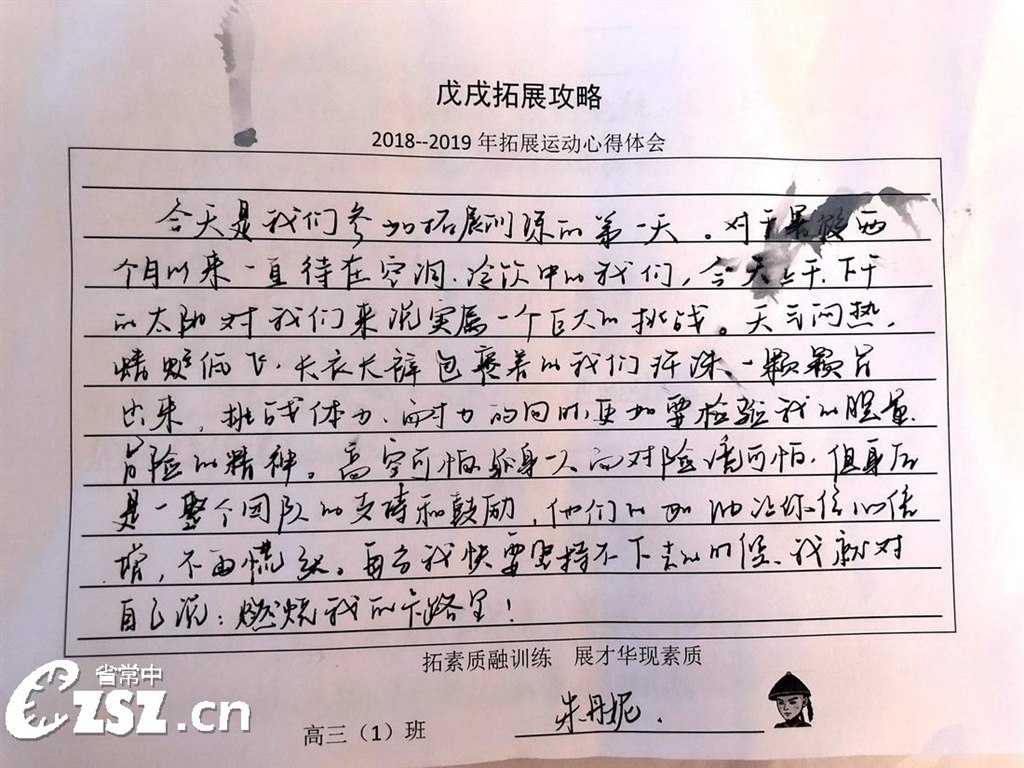 戊戌拓展攻略
2018--2019年拓展运动心得体会
今天是我们参加拓展训练的第一天。对于暑假两
个月以来一直待在空调、冷饮中的我们，今天上午、下午
的太阳对我们来说实属一个巨大的挑战。天气闷热，
蜻蜓低飞，长衣长裤包裹着的我们汗珠一颗颗
出来，挑战体力、耐力的同时更加要检验我的胆量、
冒险的精神。高空可怕，孤身一人面对险境可怕，但身后
是一整个团队的支持和鼓励，他们的加油让你信心倍
增，不再慌乱。每当我快要坚持不下去的时候，我就对
自己说：燃烧我的卡路里！
拓素质融训练 展才华现素质
高三（1）班
朱丹妮.
省常中
CZSZ.cn